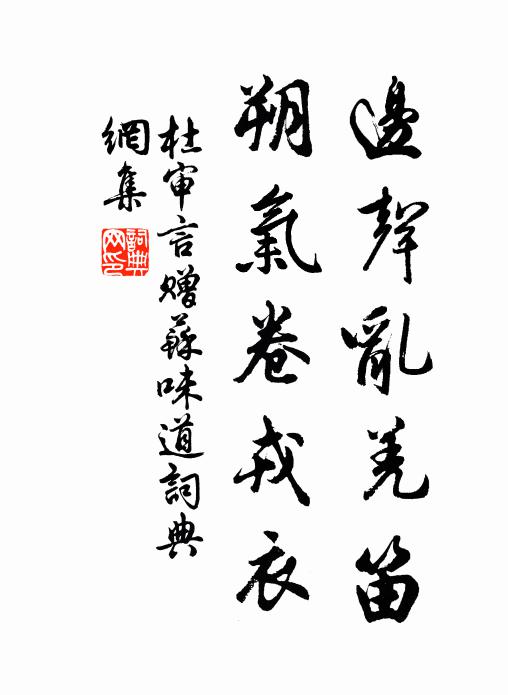 邊聲亂羌笛
朔氣卷戎衣
杜审言赠蘇味道詞典
網集
詞典
网印